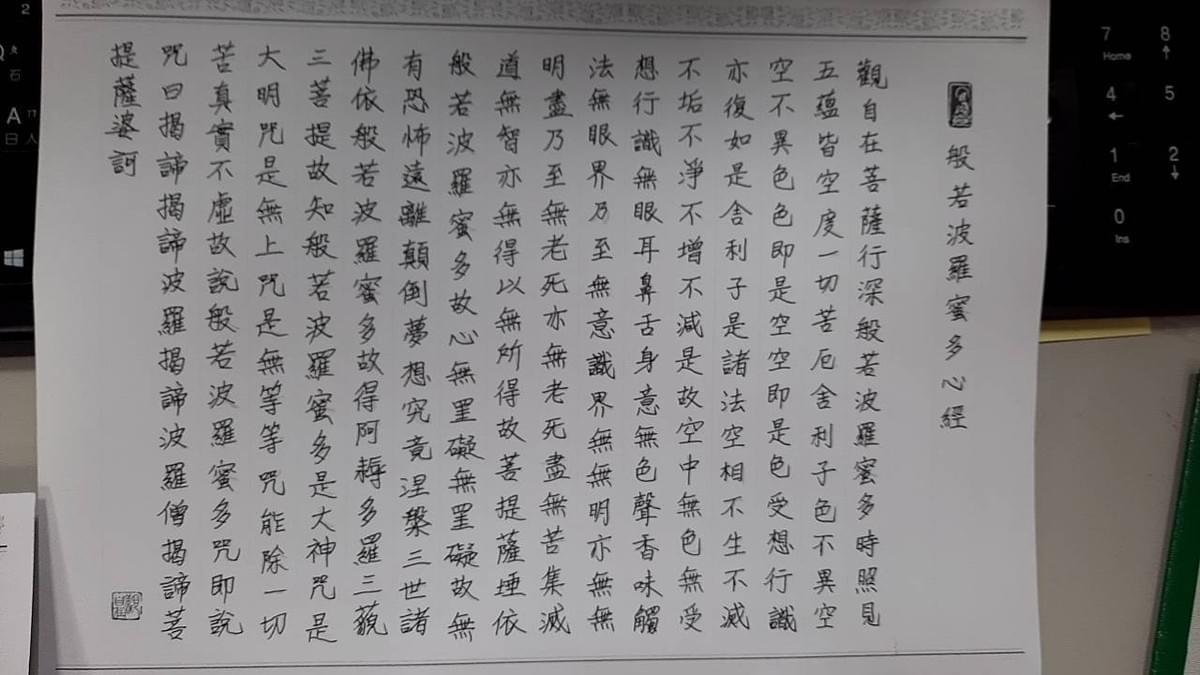 般若波羅蜜多心經
觀自在菩薩行深般若波羅蜜多時照見
五蘊皆空度一切苦厄舍利子色不異空
空不異色色即是空空即是色受想行識
亦復如是舍利子是諸法空相不生不滅
不垢不淨不增不減是故空中無色無受
想行識無眼耳鼻舌身意無色聲香味觸
法無眼界乃至無意識界無無明亦無無
明盡乃至無老死亦無老死盡無苦集滅
道無智亦無得以無所得故菩提薩埵依
般若波羅蜜多故心無罣礙無罣礙故無
有恐怖遠離顛倒夢想究竟涅槃三世諸
佛依般若波羅蜜多故得阿耨多羅三藐
三菩提故知般若波羅蜜多是大神咒是
大明咒是無上咒是無等等咒能除一切
苦真實不虛故說般若波羅蜜多咒即說
咒曰揭諦揭諦波羅揭諦波羅僧揭諦菩
提薩婆訶
2
Q
石
A
日
人
7
Home
8
4
5
1
End
2
0
Ins